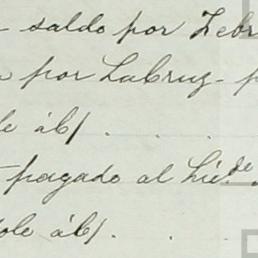 saldo por Febr
por Labruz- p
le ab/. . . .
pagado al Lic. de
ole ab/. . .